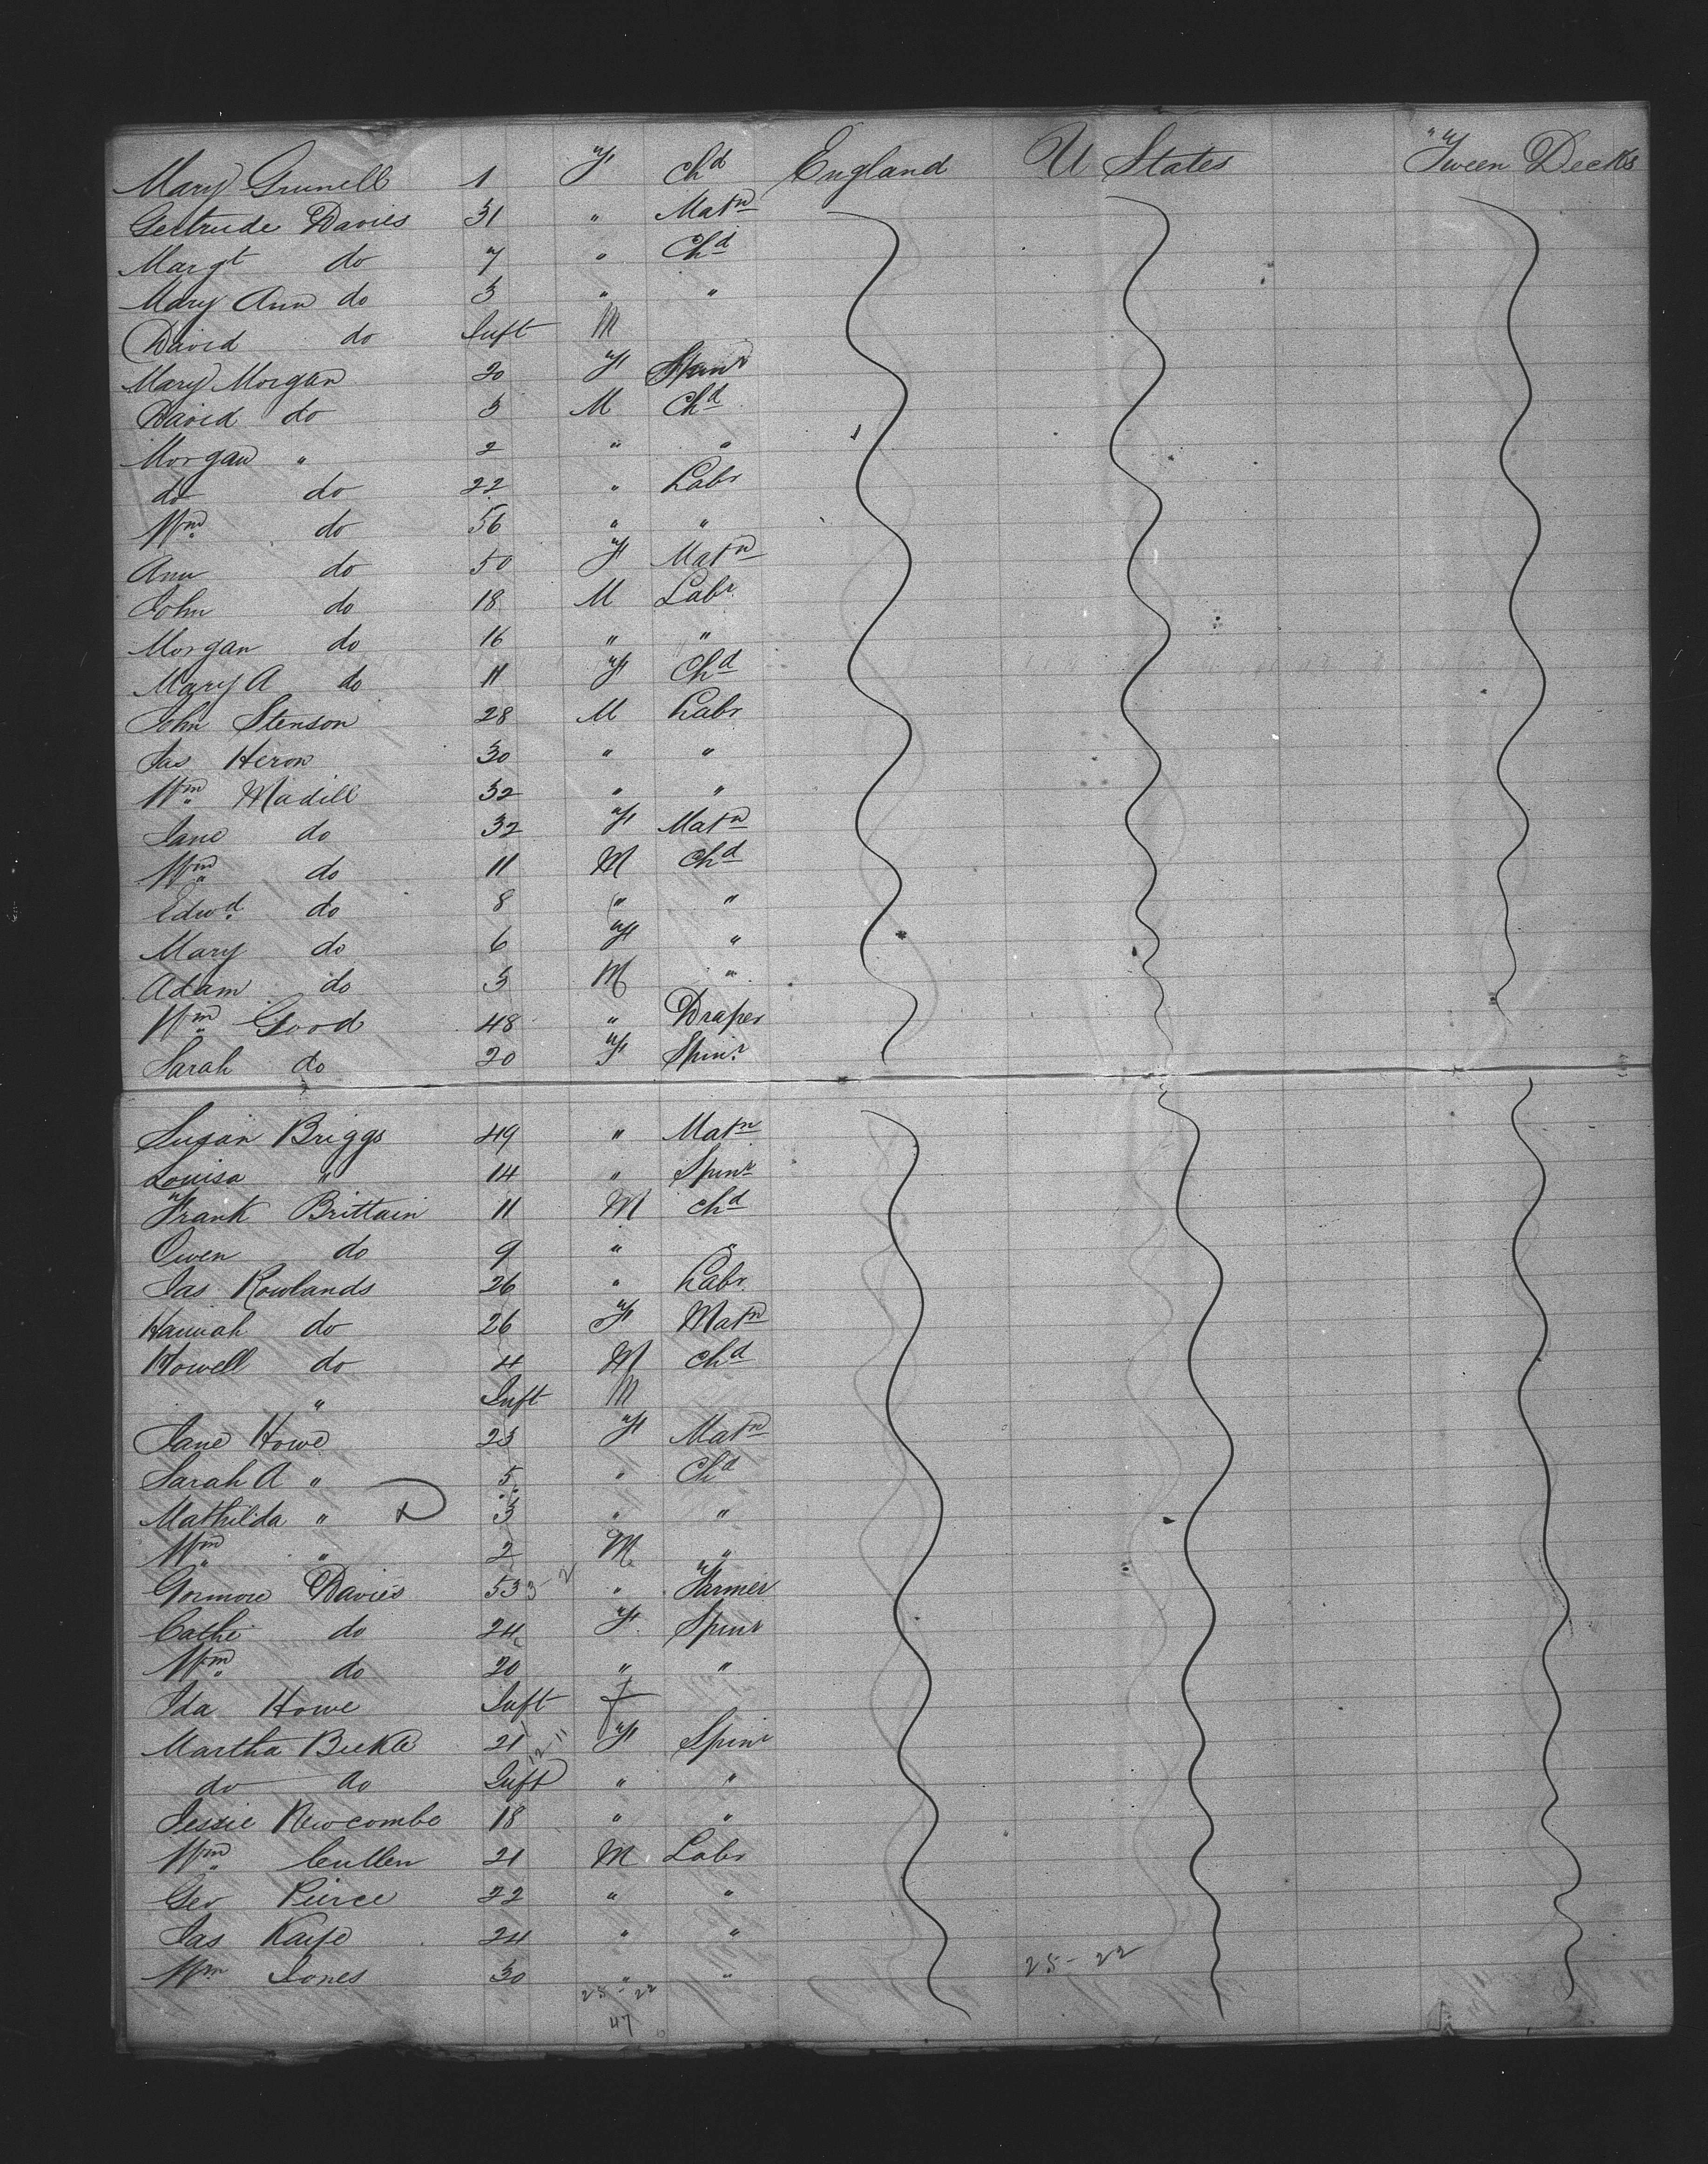 Mary Grunell 1 F Chd England U States Tween Decks
Gertrude Davies 31 " Matn
Margt do 7 " Chd
Mary Ann do 3 " "
David do Inft M
Mary Morgan 20 F Spinr
David do 3 M Chd
Morgan " 2 " "
do do 22 " Labr
Wm do 56 " "
Ann do 50 F Matn
John do 18 M Labr
Morgan do 16 " "
Mary A do 11 F Chd
John Stenson 28 M Labr
Jas Heron 30 " "
Wm Madill 32 " "
Jane do 32 F Matn
Wm do 11 M Chd
Edwd do 8 " "
Mary do 6 F "
Adam do 3 M "
Wm Good 48 " Draper
Sarah do 20 F Spinr
Susan Briggs 49 " Matn
Louisa " 14 " Spinr
Frank Brittain 11 M Chd
Owen do 9 " "
Jas Rowlands 26 " Labr
Hannah do 26 F Matn
Howell do 4 M Chd
" Inft M
Jane Howe 25 F Matn
Sarah A " 5 " Chd
Mathilda " D 3 " "
Wm " 2 M "
Davies 53 3-2 " Farmer
Cathe do 24 F Spinr
Wm do 20 " "
Ida Howe Inft f
Martha 21 12-11 F Spinr
do do Inft " "
Jessie Newcombe 18 " "
Wm Cullen 21 M Labr
Geo Pierce 22 " "
Jas 24 " "
Wm Jones 30 " "
25-22 25-22
47